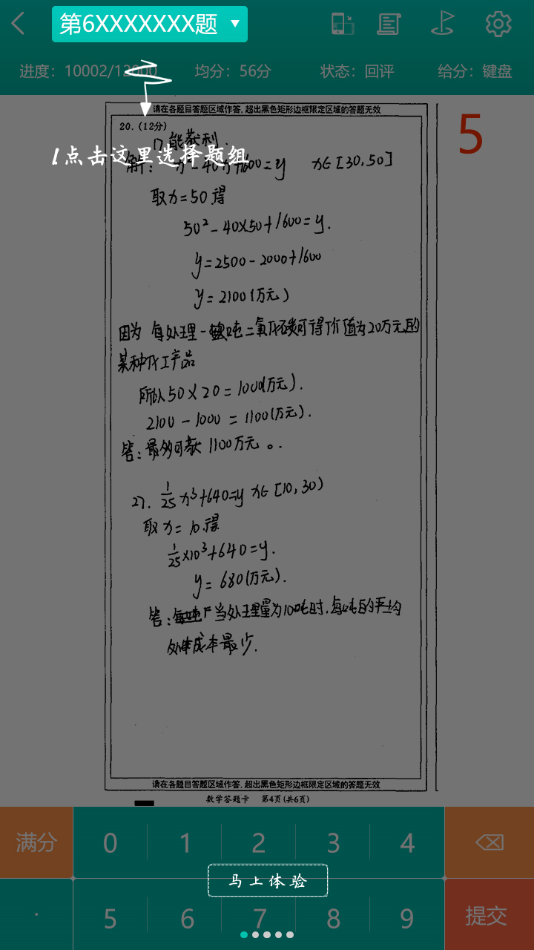 第6XXXXXXX题
进度：10002/12000 均分：56分 状态：回评 给分：键盘
请在各题目答题区域作答，超出黑色矩形边框限定区域的答题无效
20.(12分)
能获利.
1点击这里选择题组
5
解： x²-40x+1600=y x∈[30,50]
取x=50得
50²-40×50+1600=y.
y=2500-2000+1600
y=2100(万元)
因为 每处理一吨二氧化碳可得价值为20万元的
某种化工产品
所以50×20=1000(万元).
2100-1000=1100(万元).
答：最多可获1100万元。
27. 1/25 x³+640=y x∈[10,30)
取x=10.得
1/25×10³+640=y.
y=680(万元).
答： 当处理量为10吨时,每吨的平均
处理成本最少.
请在各题目答题区域作答，超出黑色矩形边框限定区域的答题无效
数学答题卡 第4页(共6页)
满分 0 1 2 3 4
马上体验
· 5 6 7 8 9 提交